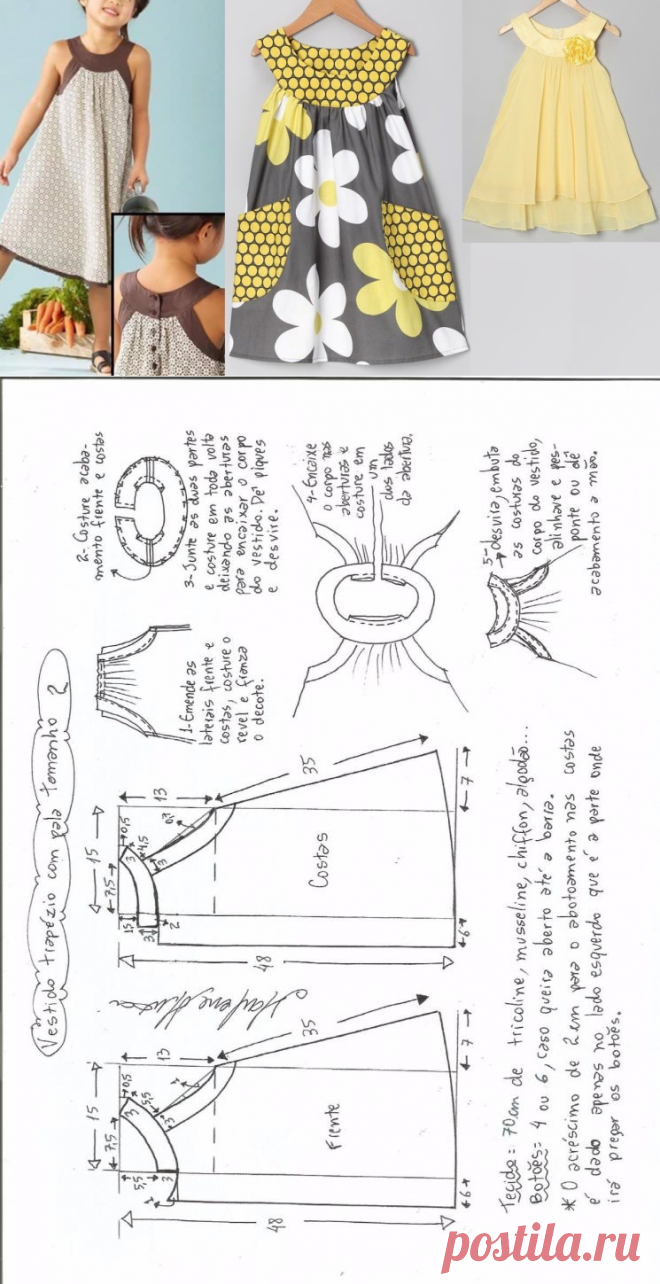 Vestido trapézio com pala tamanho 2
1- Emende as
laterais frente e
costas, costure o
revel e franza
o decote.
2- Costure acaba-
mento frente e costas
3- Junte as duas partes
e costure em toda volta
deixando as aberturas
para encaixar o corpo
do vestido. Dê piques
e desvire.
4- Encaixe
o corpo nas
aberturas e
costure em
um
dos lados
da abertura.
5- desvira, embuta
as costuras do
corpo do vestido,
alinhave e pes-
ponte ou dê
acabamento a mão.
15
7,5
0,5
3
5,5
13
35
5,5
3
Frente
48
6
7
15
7,5
0,5
3
4,5
13
0,7
3
35
15
3
2
Costas
48
6
7
Tecido = 70cm de tricoline, musseline, chiffon, algodão...
Botões = 4 ou 6, caso queira aberto até a barra.
* O acréscimo de 2cm para o abotoamento nas costas
é dado apenas no lado esquerdo que é a parte onde
irá pregar os botões.
postila.ru